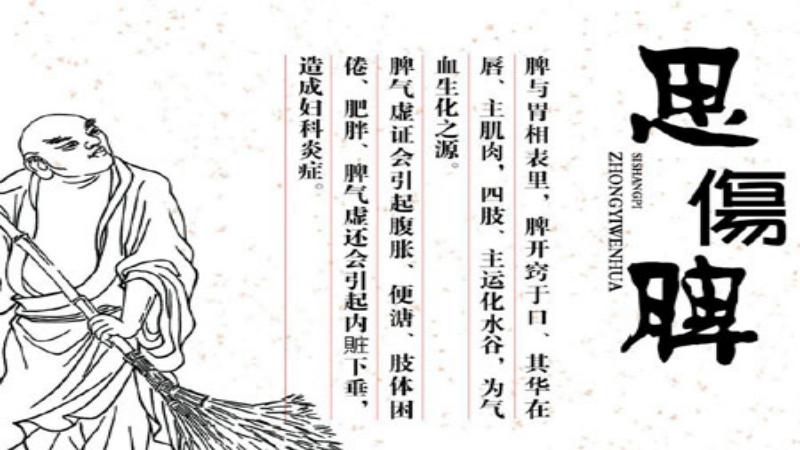 思傷脾
SISHANGPI
ZHONGYIWENHUA
脾与胃相表里，脾开窍于口、其华在
唇、主肌肉，四肢、主运化水谷，为气
血生化之源。
脾气虚证会引起腹胀、便溏、肢体困
倦、肥胖、脾气虚还会引起内賍下垂，
造成妇科炎症。